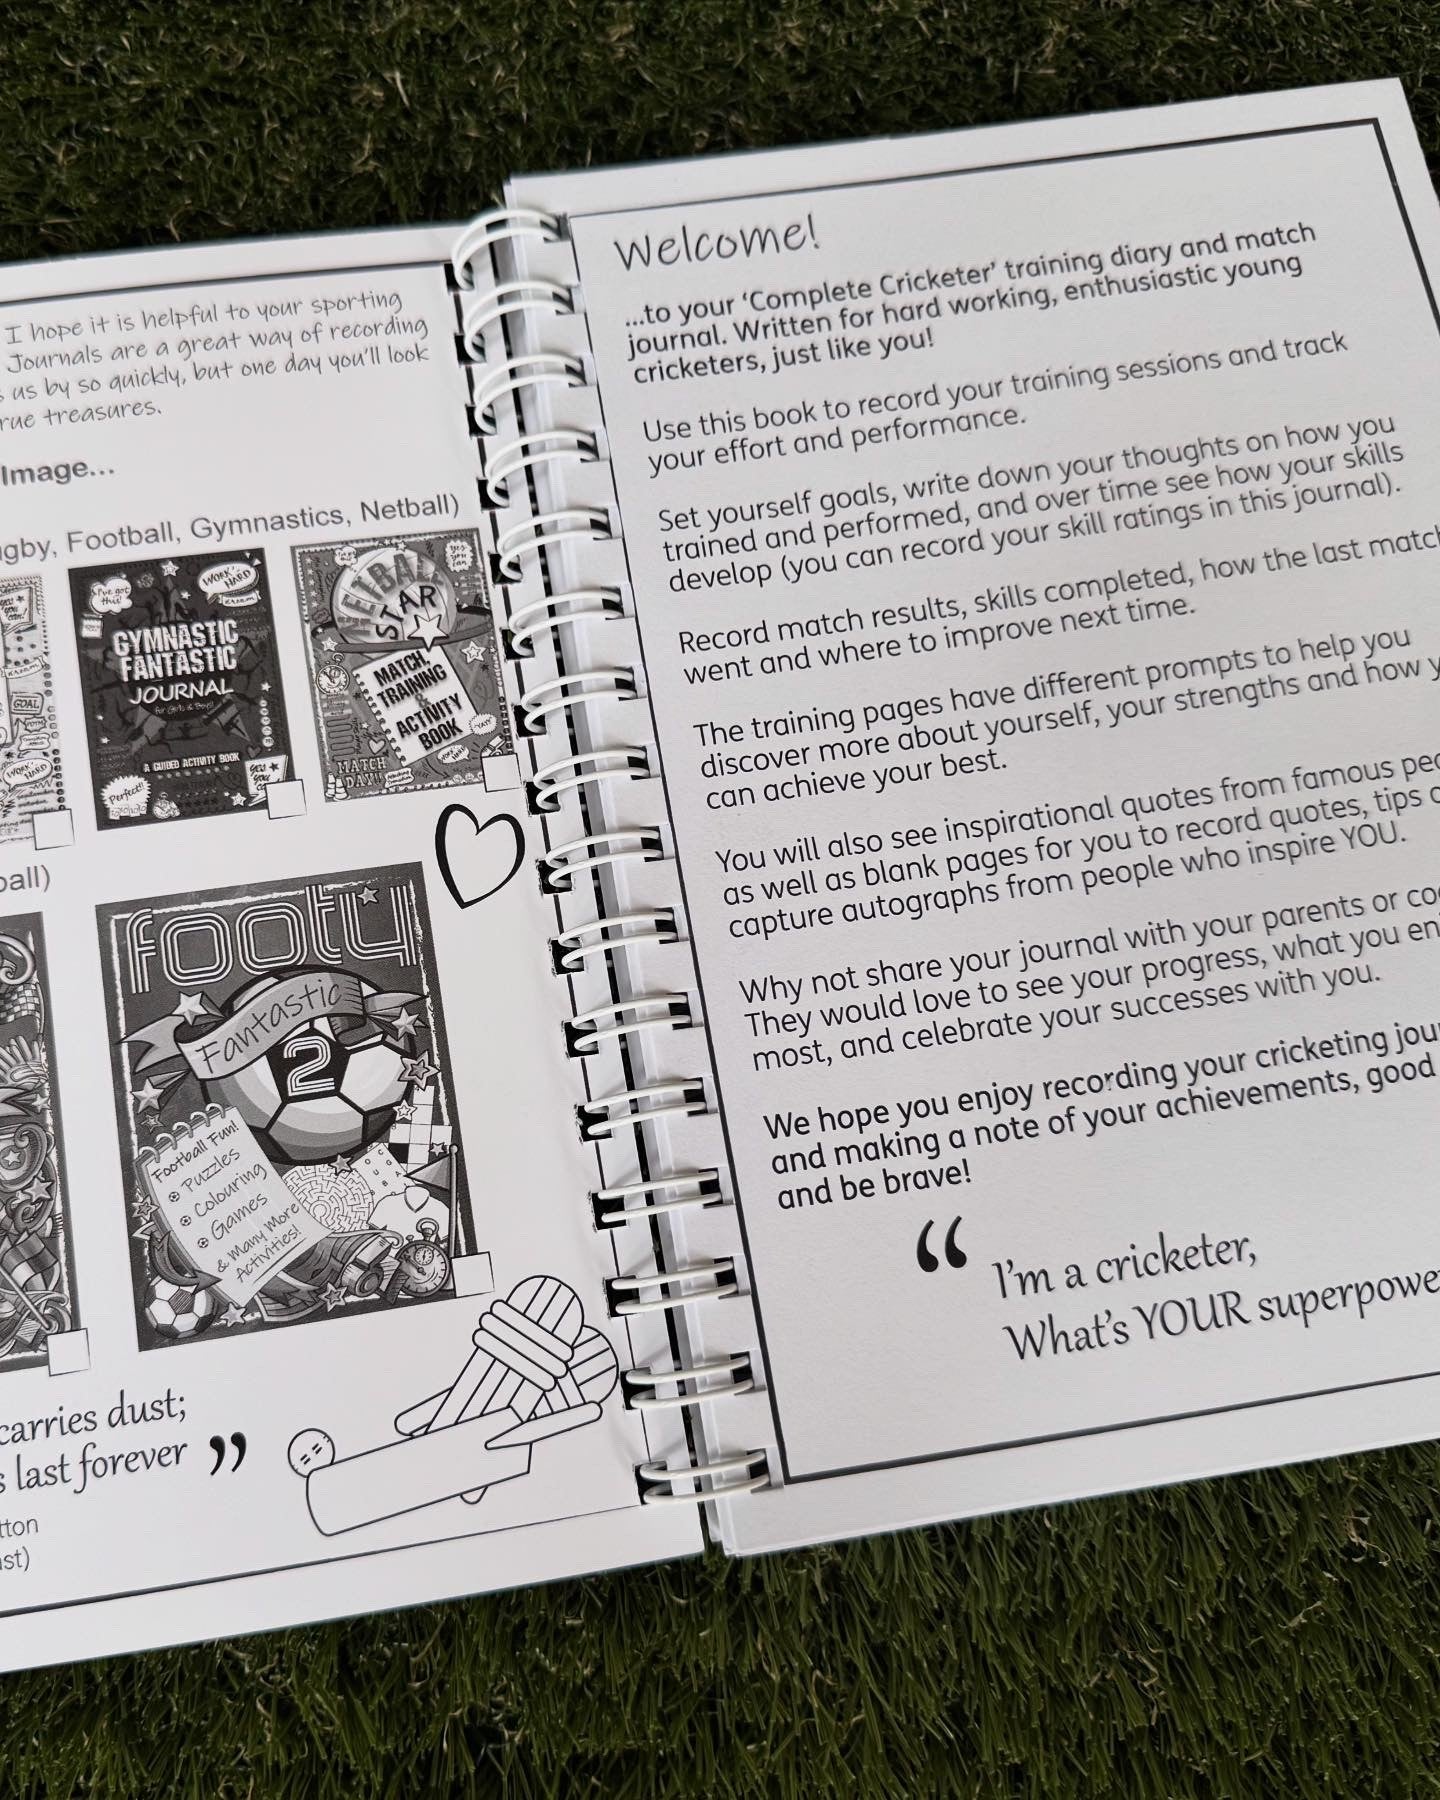 I hope it is helpful to your sporting
Journals are a great way of recording
us by so quickly, but one day you'll look
treasures.
Image...
Football, Gymnastics, Netball)
I've got this!
WORK HARD
GYMNASTIC
FANTASTIC
JOURNAL
for Girls & Boys!
A GUIDED ACTIVITY BOOK
Perfect!
yes you can
NETBALL
STAR
MATCH,
TRAINING
&
ACTIVITY
BOOK
MATCH
DAY!
GOAL
WORK HARD
footy
Fantastic
2
Football Fun!
Puzzles
Colouring
Games
& Many More
Activities!
carries dust;
last forever ”
Welcome!
...to your ‘Complete Cricketer’ training diary and match
journal. Written for hard working, enthusiastic young
cricketers, just like you!
Use this book to record your training sessions and track
your effort and performance.
Set yourself goals, write down your thoughts on how you
trained and performed, and over time see how your skills
develop (you can record your skill ratings in this journal).
Record match results, skills completed, how the last match
went and where to improve next time.
The training pages have different prompts to help you
discover more about yourself, your strengths and how
can achieve your best.
You will also see inspirational quotes from famous
as well as blank pages for you to record quotes, tips
capture autographs from people who inspire YOU.
Why not share your journal with your parents or
They would love to see your progress, what you
most, and celebrate your successes with you.
We hope you enjoy recording your cricketing
and making a note of your achievements, good
and be brave!
“ I'm a cricketer,
What's YOUR